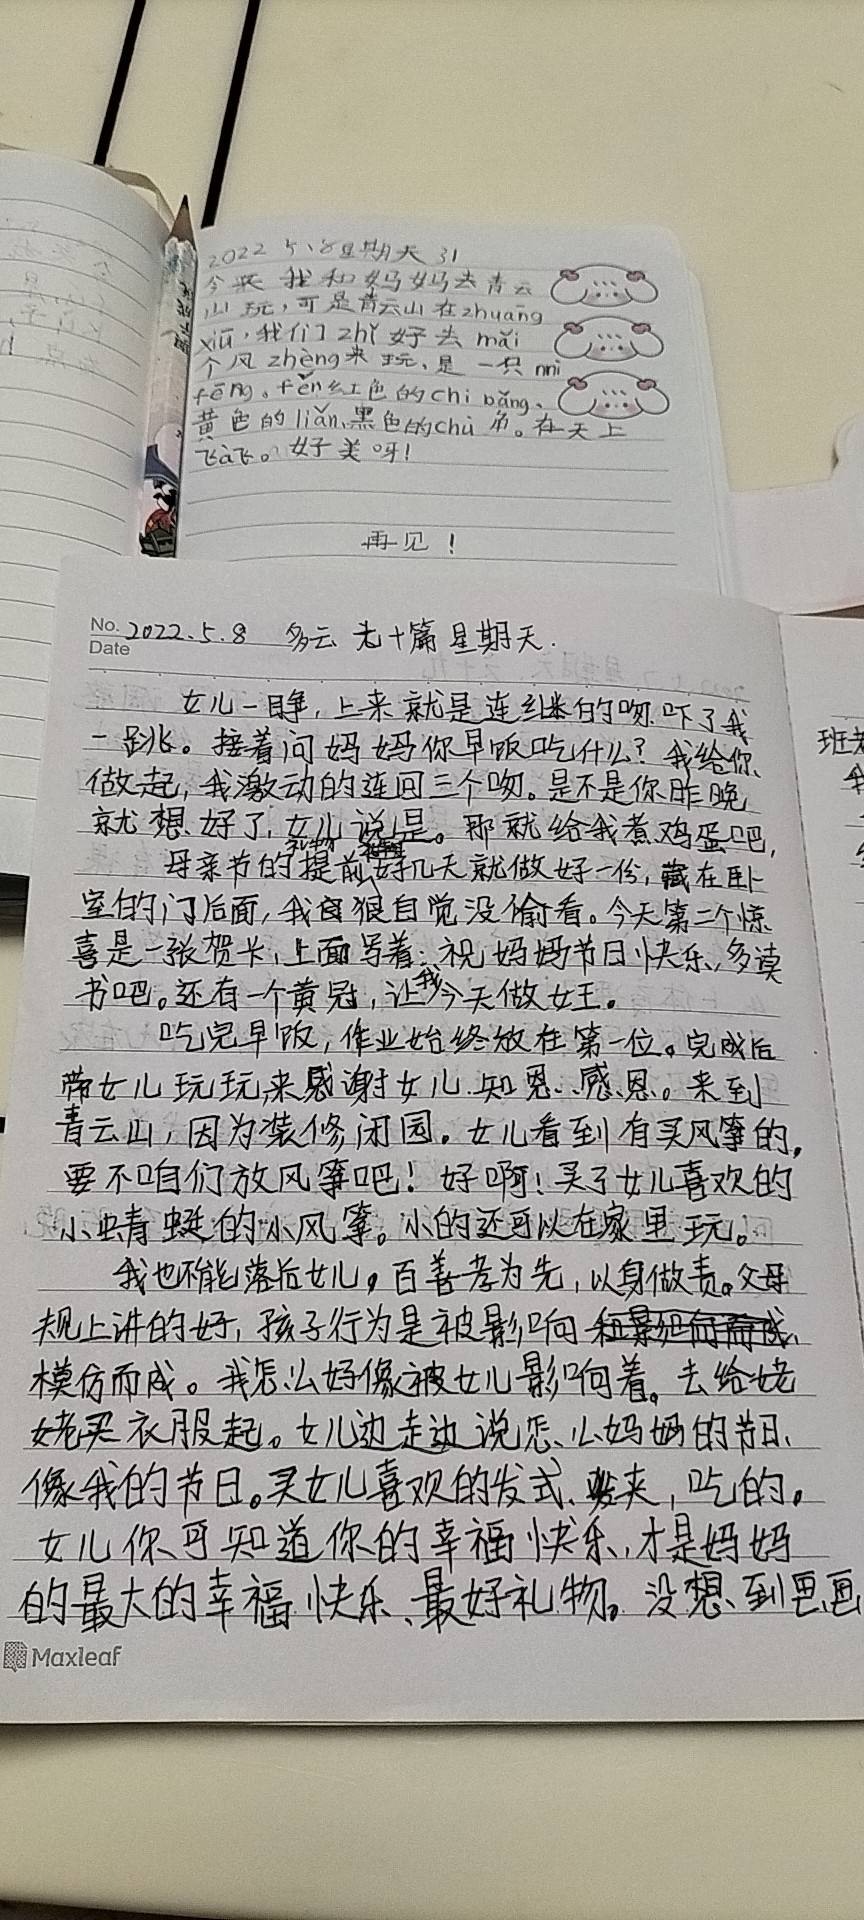 2022 5、8星期天 31
今天 我和妈妈去青云
山玩，可是青云山在zhuāng
xiū，我们zhǐ好去 mǎi
个风zhēng来玩、是一只mì
fēng。fěn红色的chì bǎng、
黄色的liǎn、黑色的chù角。在天上
飞a飞。好美呀！
再见！
No. 2022.5.8 多云 六十篇 星期天.
Date
女儿一睁，上来就是连续的吻.吓了我
一跳。接着问妈妈你早饭吃什么？我给你、
做起，我激动的连回三个吻。是不是你昨晚
就想好了，女儿说是。那就给我煮鸡蛋吧，
礼物
母亲节的提前好几天就做好一份，藏在卧
室的门后面，我自狠自觉没偷看。今天第二个惊
喜是一张贺卡，上面写着：祝妈妈节日快乐、多读
书吧。还有一个黄冠，让我今天做女王。
吃完早饭，作业始终放在第一位。完成后
带女儿玩玩，来感谢女儿.知恩、感恩。来到
青云山，因为装修闭园。女儿看到有买风筝的，
要不咱们放风筝吧！好啊！买了女儿喜欢的
小蜻蜓的小风筝。小的还可以在家里玩。
我也不能落后女儿，百善孝为先，以身做责。父母
规上讲的好，孩子行为是被影响
模仿而成。我怎么好像被女儿影响着。去给姥
姥买衣服起。女儿边走边说怎么妈妈的节日、
像我的节日。买女儿喜欢的发式、发夹，吃的。
女儿你可知道你的幸福快乐，才是妈妈
的最大的幸福快乐、最好礼物。没想到画画
Maxleaf
班